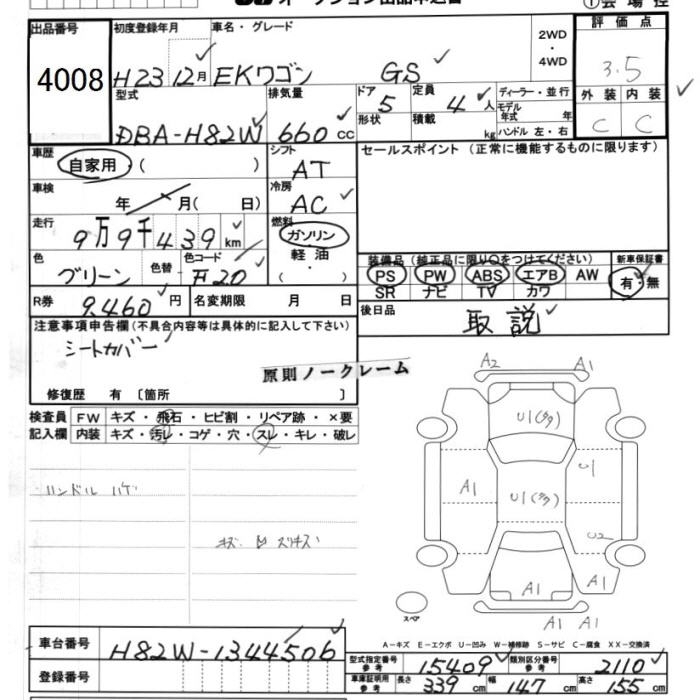 オークション出品申込書
①会場控
出品番号 初度登録年月 車名・グレード 2WD・4WD 評価点
4008 H23 12月 EKワゴン GS 3.5
型式 排気量 ドア 定員 ディーラー・並行 外装 内装
形状 積載 モデル年式 年
DBA-H82W 660cc 5 4人 kg ハンドル 左・右 C C
車歴 シフト セールスポイント (正常に機能するものに限ります)
自家用 ( ) AT
車検 冷房
年 月( 日) AC
走行 燃料
9万9千439km ガソリン
軽油
色 色替 色コード
グリーン F20
装備品 (純正品に限り○をつけてください) 新車保証書
PS PW ABS エアB AW 有・無
SR ナビ TV カワ
R券 9,460円 名変期限 月 日
後日品 取説
注意事項申告欄(不具合内容等は具体的に記入して下さい)
シートカバー
原則ノークレーム
修復歴 有 〔箇所 〕
検査員 FW キズ・飛石・ヒビ割・リペア跡・×要
記入欄 内装 キズ・汚レ・コゲ・穴・スレ・キレ・破レ
ハンドル ハゲ
A2 A1
U1(多)
A1 U1(多) U1
U2
A1 A1
A1 A1
スペア
A-キズ E-エクボ U-凹み W-補修跡 S-サビ C-腐食 XX-交換済
車台番号 H82W-1344506
登録番号
型式指定番号 参考 15409 類別区分番号 参考 2110
車庫証明用 参考 長さ 339cm 幅 147cm 高さ 155cm